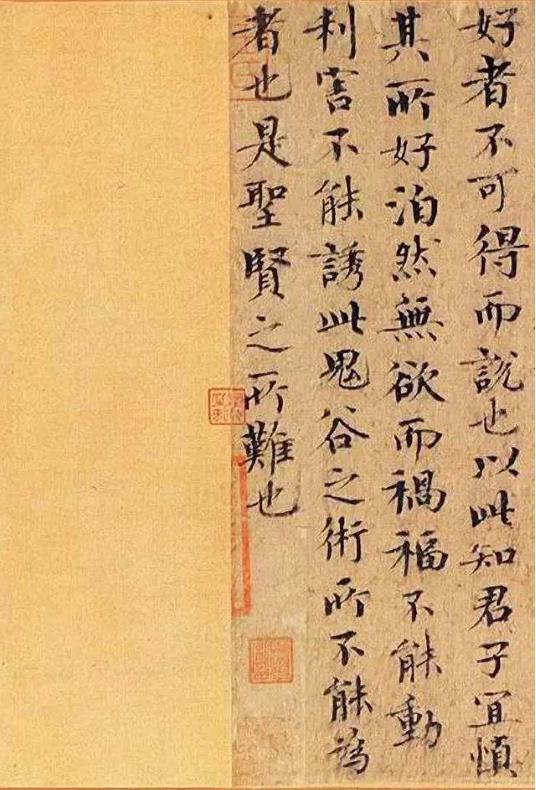 好者不可得而說也以此知君子宜慎
其所好泊然無欲而禍福不能動
利害不能誘此鬼谷之術所不能為
者也是聖賢之所難也